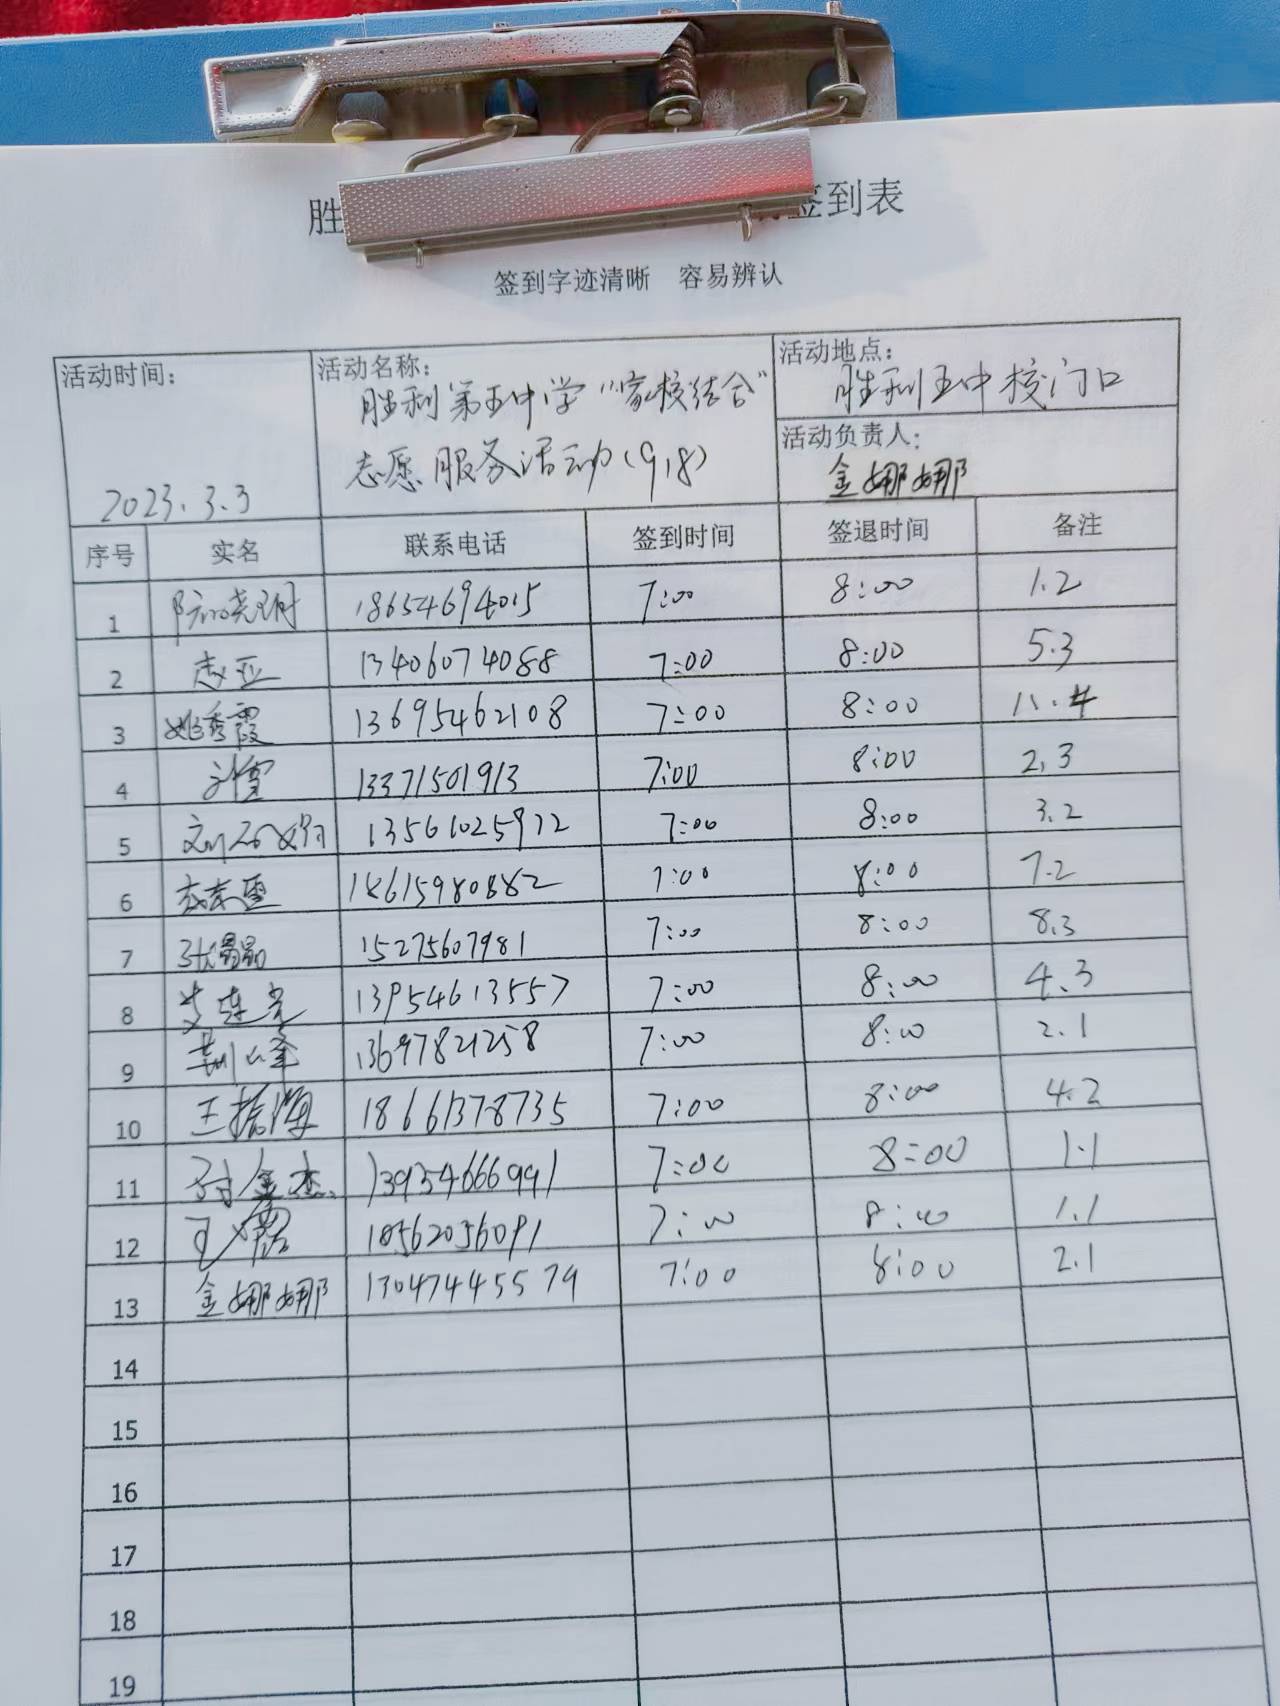 胜 签到表
签到字迹清晰 容易辨认
活动时间: 2023.3.3
活动名称: 胜利第五中学“家校结合”
志愿服务活动(918)
活动地点: 胜利五中校门口
活动负责人: 金娜娜
序号 实名 联系电话 签到时间 签退时间 备注
1 18654694015 7:00 8:00 1.2
2 赵亚 13406074088 7:00 8:00 5.3
3 姚秀霞 13695462108 7:00 8:00 11.4
4 刘雪 13371501913 7:00 8:00 2.3
5 13561025972 7:00 8:00 3.2
6 18615980882 7:00 8:00 7.2
7 15275607981 7:00 8:00 8.3
8 13954613557 7:00 8:00 4.3
9 13697821258 7:00 8:00 2.1
10 王振海 18661378735 7:00 8:00 4.2
11 13954666991 7:00 8:00 1.1
12 18562056091 7:00 8:00 1.1
13 金娜娜 13047445579 7:00 8:00 2.1
14
15
16
17
18
19